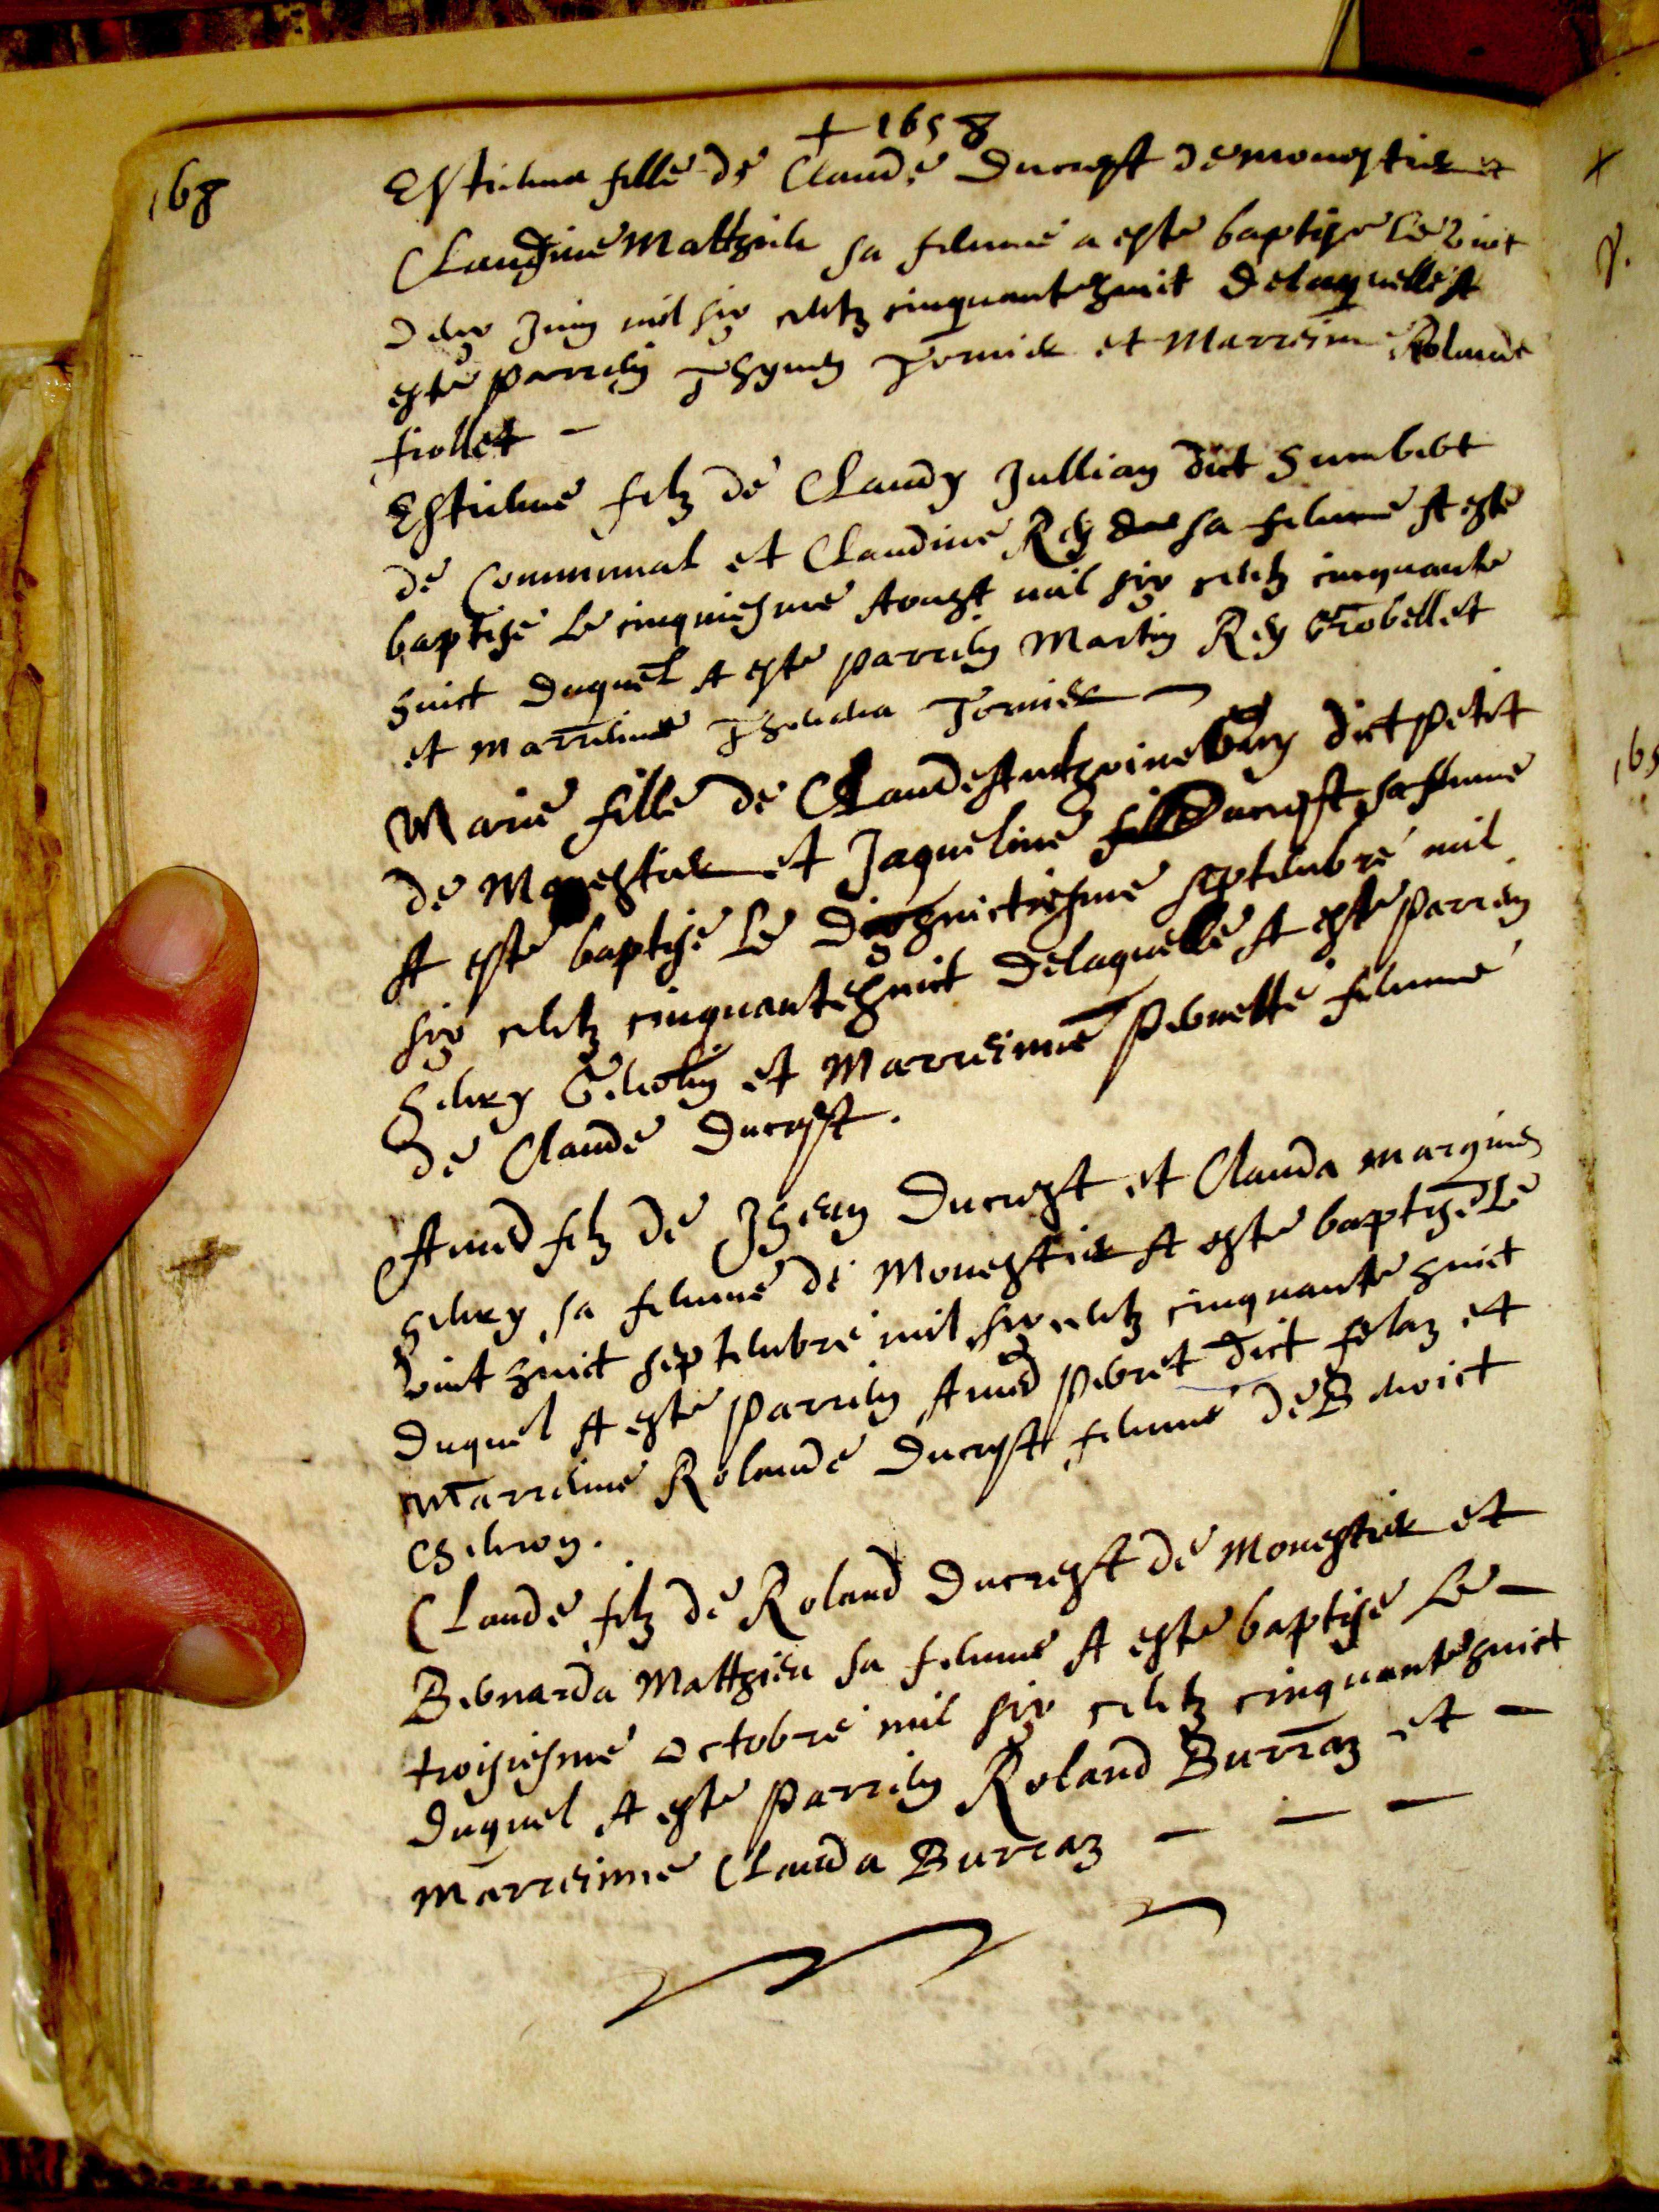 + 1658
168
Estienna fille de Claude Ducrest de monestier et
Claudine Matthieu sa femme a este baptise le vint
deux Juing mil six centz cinquantehuict delaquelle A
este parrein Thyven Tornier et Marreine Rolande
frollet –
Estienne filz de Claudy Jullian dict humbert
de Communal et Claudine Rey sa femme A este
baptise le cinquiesme Aoust mil six centz cinquante
huict duquel A este parrein Martin Rey Grobellet
et marreine Thevena Tornier
Marie fille de Claude Anthoine dict petit
de Monestier et Jaqueline Ducrest sa femme
A este baptise le dixhuictiesme septembre mil
six centz cinquantehuict delaquelle A este parrein
henry et Marreinne pernette femme
de Claude Ducrest.
Amed filz de Jhean Ducrest et Clauda
henry sa femme de Monestier A este baptise le
vint huict septembre mil six centz cinquante huict
duquel A este parrein Amed perret dict et
Marreine Rolande Ducrest femme de Benoict

Claude filz de Roland Ducrest de Monestier et
Bernarda Matthieu sa femme A este baptise le –
troisiesme octobre mil six centz cinquantehuict
duquel A este parrein Roland Burraz et –
marreinne Clauda Burraz – – –